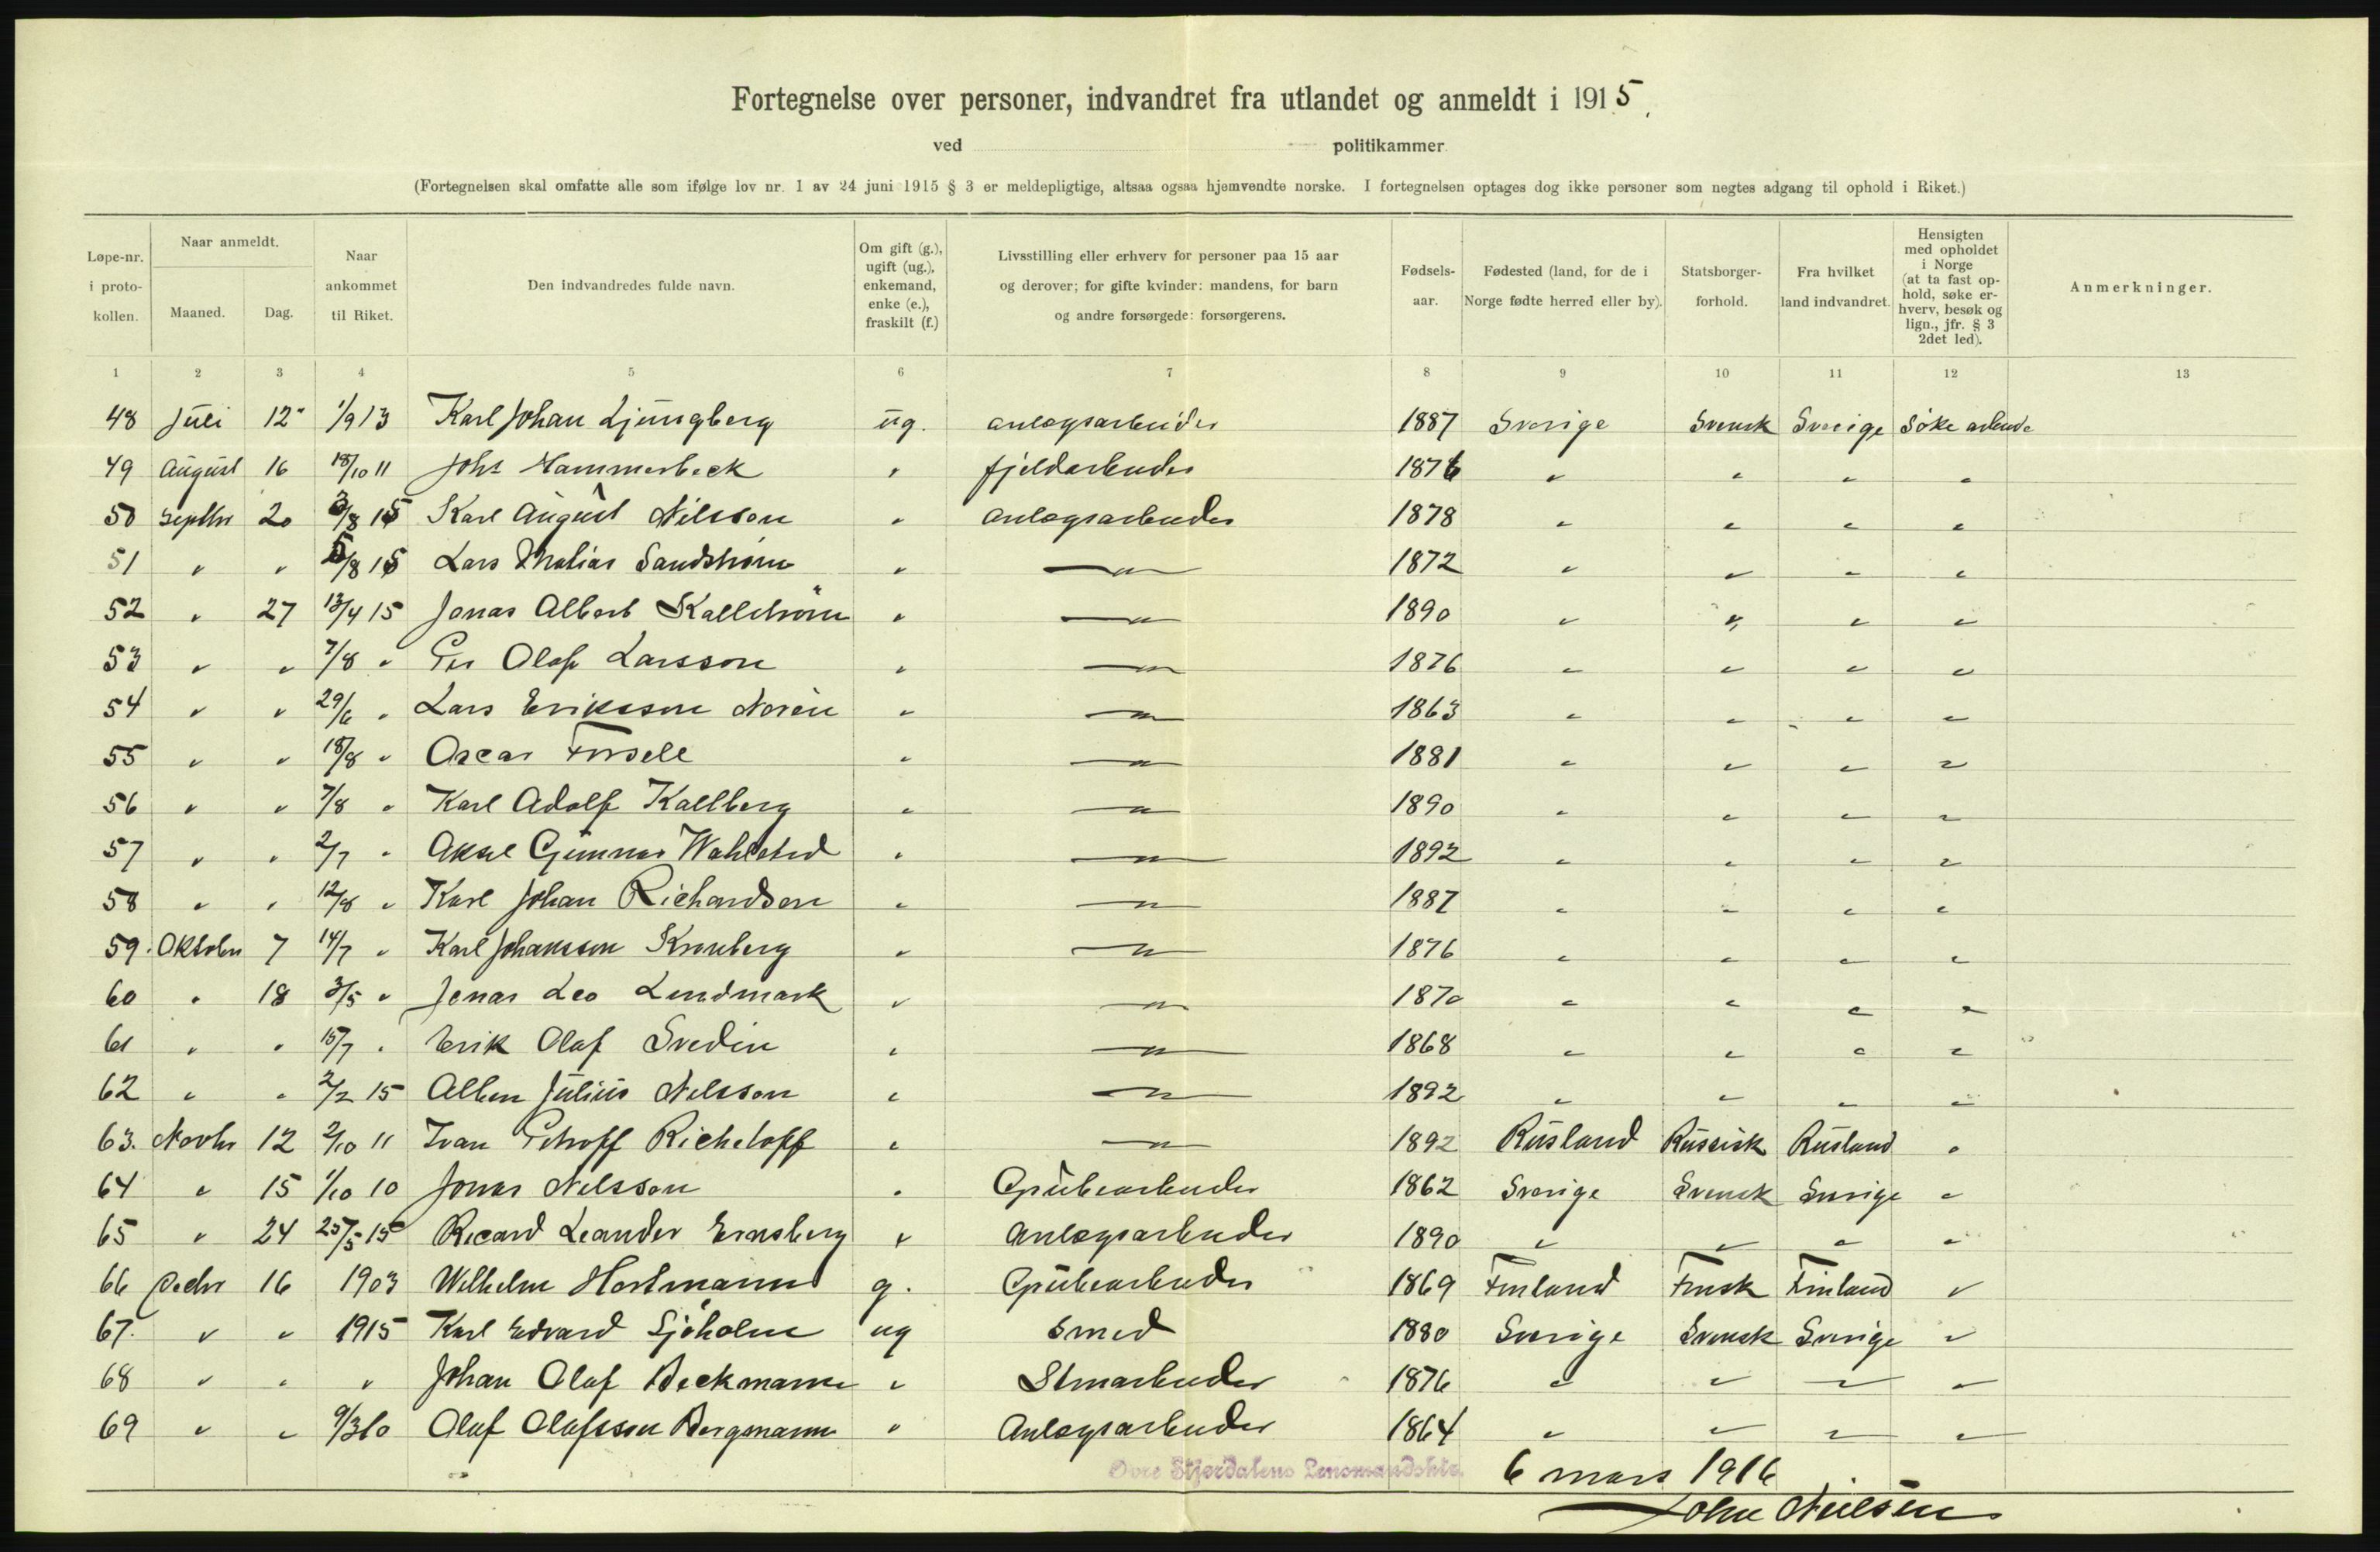 Fortegnelse over personer, indvandret fra utlandet og anmeldt i 1915.
ved politikammer
(Fortegnelsen skal omfatte alle som ifølge lov nr. 1 av 24 juni 1915 § 3 er meldepligtige, altsaa ogsaa hjemvendte norske. I fortegnelsen optages dog ikke personer som negtes adgang til ophold i Riket.)
Løpe-nr. i proto-kollen.
Naar anmeldt.
Maaned.
Dag.
Naar ankommet til Riket.
Den indvandredes fulde navn.
Om gift (g.), ugift (ug.), enkemand, enke (e.), fraskilt (f.)
Livsstilling eller erhverv for personer paa 15 aar og derover; for gifte kvinder: mandens, for barn og andre forsørgede: forsørgerens.
Fødsels-aar.
Fødested (land, for de i Norge fødte herred eller by).
Statsborger-forhold.
Fra hvilket land indvandret.
Hensigten med opholdet i Norge (at ta fast op-hold, søke er-hverv, besøk og lign., jfr. § 3 2det led).
Anmerkninger.
1 2 3 4 5 6 7 8 9 10 11 12 13
48 Juli 12 1/9 13 Karl Johan Ljungberg ug. anlægsarbeider 1887 Sverige Svensk Sverige Søke arbeide
49 August 16 18/10 11 Johs Hammerbeck " fjeldarbeider 1876 " " " "
50 Septbr 20 3/8 15 Karl August Nilsson " anlægsarbeider 1878 " " " "
51 " " 5/8 15 Lars Mathias Sandström " — " — 1872 " " " "
52 " 27 13/4 15 Jonas Albert Kallström " — " — 1890 " " " "
53 " " 7/8 " Per Olof Larsson " — " — 1876 " " " "
54 " " 29/6 " Lars Eriksson Norén " — " — 1863 " " " "
55 " " 18/8 " Oscar Forsell " — " — 1881 " " " "
56 " " 7/8 " Karl Adolf Kallberg " — " — 1890 " " " "
57 " " 2/7 " Aksel Gunnar Wahlsted " — " — 1892 " " " "
58 " " 12/8 " Karl Johan Richardson " — " — 1887 " " " "
59. Oktober 7 14/7 " Karl Johansson Kronberg " — " — 1876 " " " "
60 " 18 3/5 " Jonas Leo Lindmark " — " — 1870 " " " "
61 " " 15/7 " Erik Olaf Svedin " — " — 1868 " " " "
62 " " 2/2 15 Julius Nilsson " — " — 1892 " " " "
63. Novbr 12 2/10 11 Ivan Petroff Richeloff " — " — 1892 Rusland Russisk Rusland "
64 " 15 1/10 10 Jonas Nilsson " Grubearbeider 1862 Sverige Svensk Sverige "
65 " 24 25/5 15 Ricard Leander Ernsberg " Anlægsarbeider 1890 " " " "
66 Decbr 16 1903 Wilhelm Hartmann g. Grubearbeider 1869 Finland Finsk Finland "
67. " " 1915 Karl Edvard Sjöholm ug Smed 1880 Sverige Svensk Sverige "
68 " " " Johan Olaf Beckmann " Stenarbeider 1876 " " " "
69 " " 9/3 10 Olaf Olafsson Bergmann " Anlægsarbeider 1864 " " " "
Øvre Stjørdalens Lensmandsktr. 6 mars 1916
John Nielsen